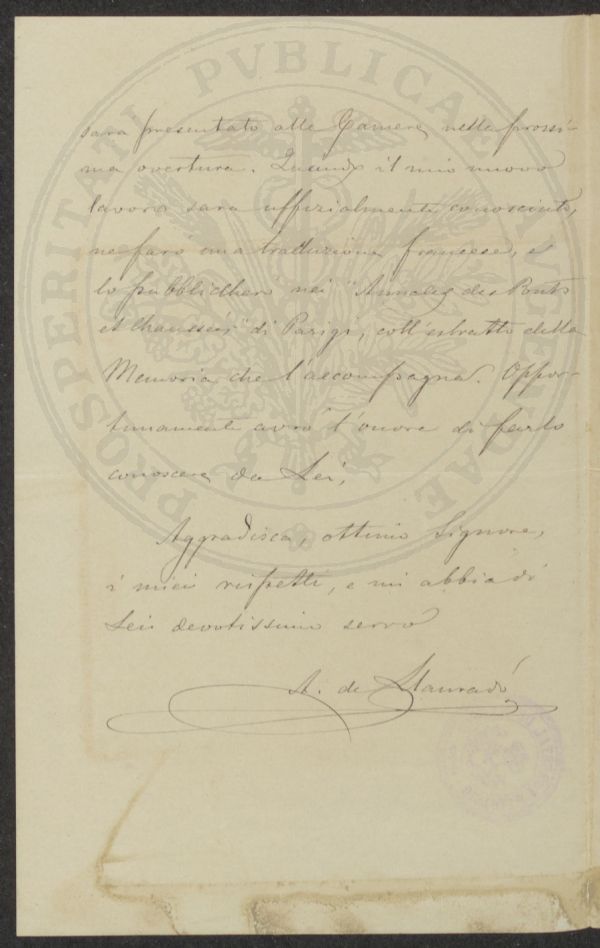 PROSPERITATI PVBLICAE AVGENDAE
sara presentato alle Camere nella prossi-
ma overtura. Quando il mio nuovo
lavoro sara uffizialmente conosciuto,
ne farò una traduzione francese, e
lo pubblicherò nei "Annales des Ponts
et Chaussées" di Parigi, coll'estratto della
Memoria che l'accompagna. Oppor-
tunamente avrò l'onore di farlo
conoscere da Lei,
Aggradisca, ottimo Signore,
i miei rispetti, e mi abbia di
Lei devotissimo servo
A. de Llauradó